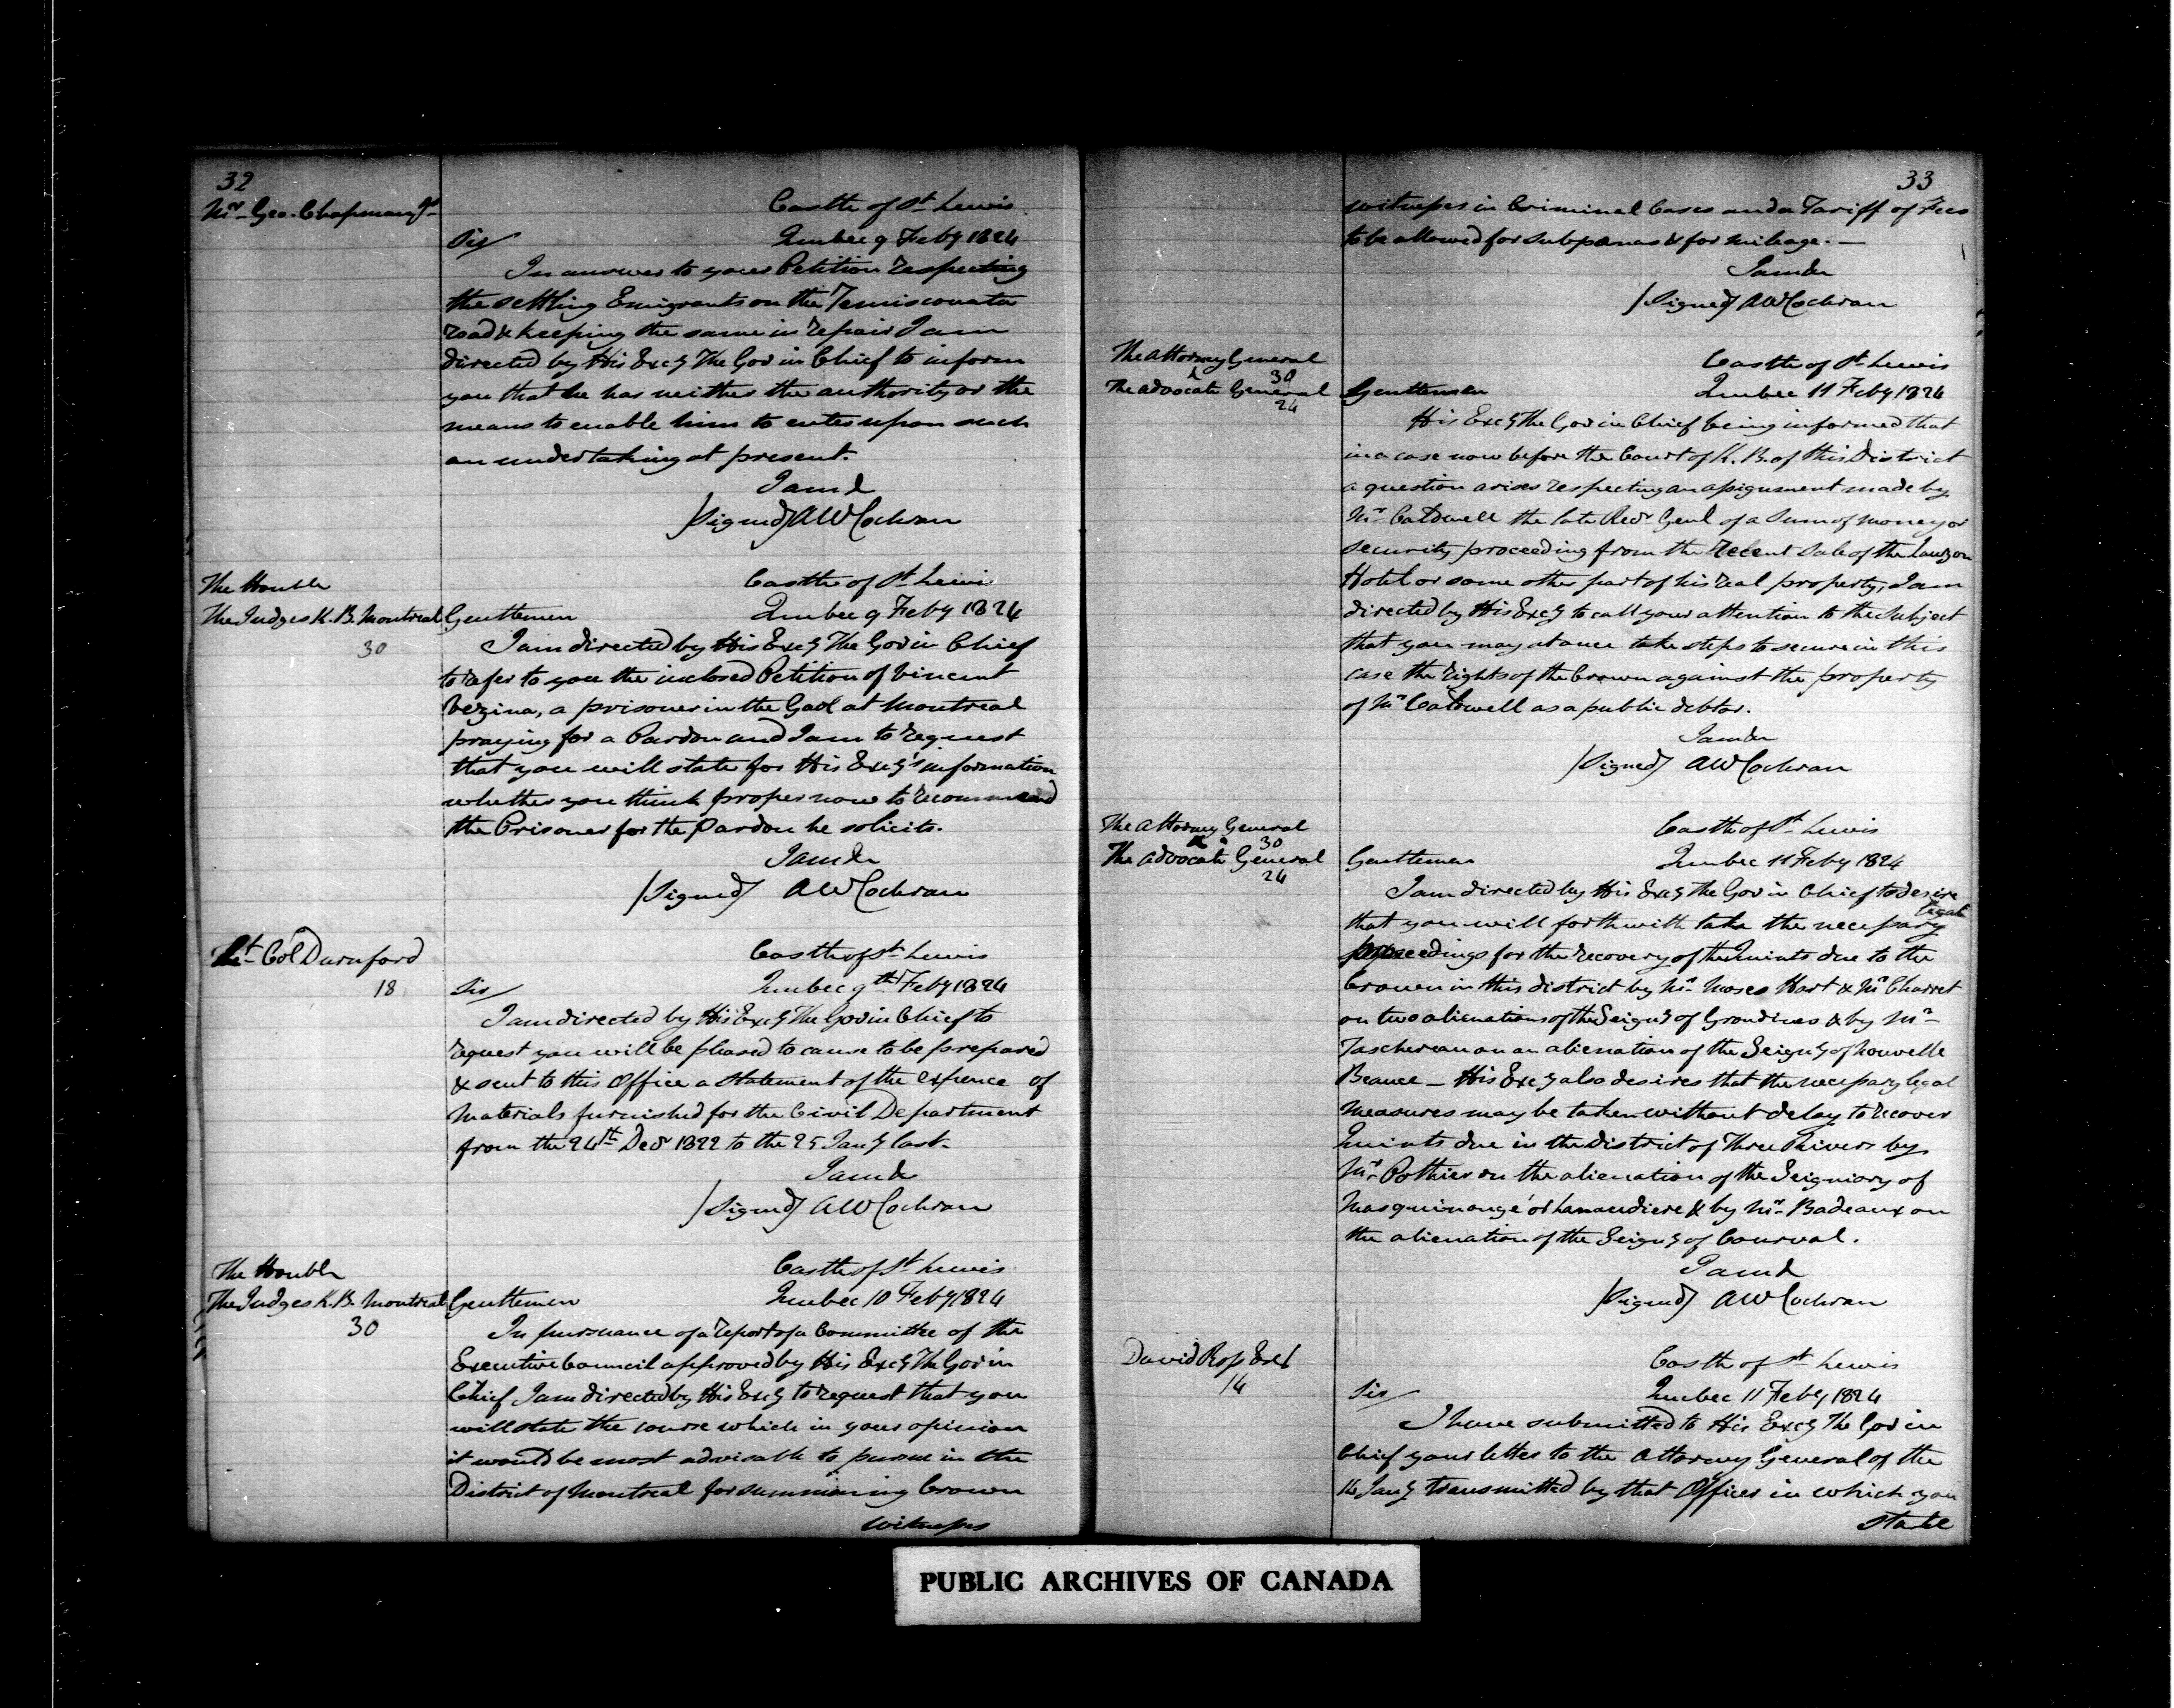 32
Mr. Geo. Chapman Jr
Castle of St. Lewis
Sir/ Quebec 9 Feby 1824
In answer to your Petition respecting
the settling Emigrants on the Temiscouata
road & keeping the same in repair I am
directed by His Excy The Gov in Chief to inform
you that he has neither the authority or the
means to enable him to enter upon such
an undertaking at present.
I am &
/Signed/ AW Cochran
The Honble
The Judges K. B. Montreal
30
Castle of St. Lewis
Gentlemen Quebec 9 Feby 1824
I am directed by His Excy The Gov in Chief
to refer to you the inclosed Petition of Vincent
Vezina, a prisoner in the Gaol at Montreal
praying for a Pardon and I am to request
that you will state for His Excy's information
whether you think proper now to recommend
the Prisoner for the Pardon he solicits.
I am &c
/Signed/ AW Cochran
Lt. Col Durnford
18
Castle of St. Lewis
Sir/ Quebec 9th Feby 1824
I am directed by His Excy The Gov in Chief to
request you will be pleased to cause to be prepared
& sent to this Office a Statement of the expence of
Materials furnished for the Civil Department
from the 24th Decr 1822 to the 25 Jany last.
I am &
/Signed/ AW Cochran
The Honble
The Judges K. B. Montreal
30
Castle of St. Lewis
Gentlemen Quebec 10 Feby 1824
In pursuance of a report of a Committee of the
Executive Council approved by His Excy The Gov in
Chief I am directed by His Excy to request that you
will state the course which in your opinion
it would be most advisable to pursue in the
District of Montreal for summoning Crown
Witnesses
33
witnesses in Criminal Cases and a Tariff of Fees
to be allowed for subpœnas & for mileage. —
I am &c
/Signed/ AW Cochran
The Attorney General
& 30
The Advocate General
24
Castle of St. Lewis
Gentlemen Quebec 11 Feby 1824
His Excy The Gov in Chief being informed that
in a case now before the Court of K. B. of this District
a question arises respecting an assignment made by
Mr. Caldwell the late Recr Genl of a Sum of money or
security proceeding from the recent sale of the Lauzon
Hotel or some other part of his real property, I am
directed by His Excy to call your attention to the Subject
that you may at once take steps to secure in this
case the rights of the Crown against the property
of Mr. Caldwell as a public debtor.
I am &c
/Signed/ AW Cochran
The Attorney General
& 30
The Advocate General
24
Castle of St. Lewis
Gentlemen Quebec 11 Feby 1824
I am directed by His Excy The Gov in Chief to desire
that you will forthwith take the necessary legal
proceedings for the recovery of the Quints due to the
Crown in this district by Mr. Moses Hart & Mr. Charret
on two alienations of the Seigny of Grondines & by Mr.
Taschereau on an alienation of the Seigny of Nouvelle
Beauce — His Excy also desires that the necessary legal
measures may be taken without delay to recover
Quints due in the District of Three Rivers by
Mr. Pothier on the alienation of the Seigniory of
Masquinongé or Lanaudiere & by Mr. Badeaux on
the alienation of the Seigny of Courval.
I am &
/Signed/ AW Cochran
David Ross Esqr
14
Castle of St. Lewis
Sir/ Quebec 11 Feby 1824
I have submitted to His Excy The Gov in
Chief your letter to the Attorney General of the
16 Jany transmitted by that Officer in which you
state
PUBLIC ARCHIVES OF CANADA